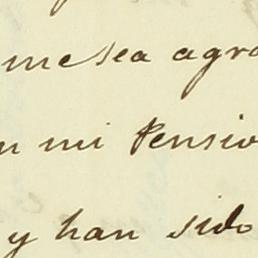 me sea agra
n mi Pensio
y han sido